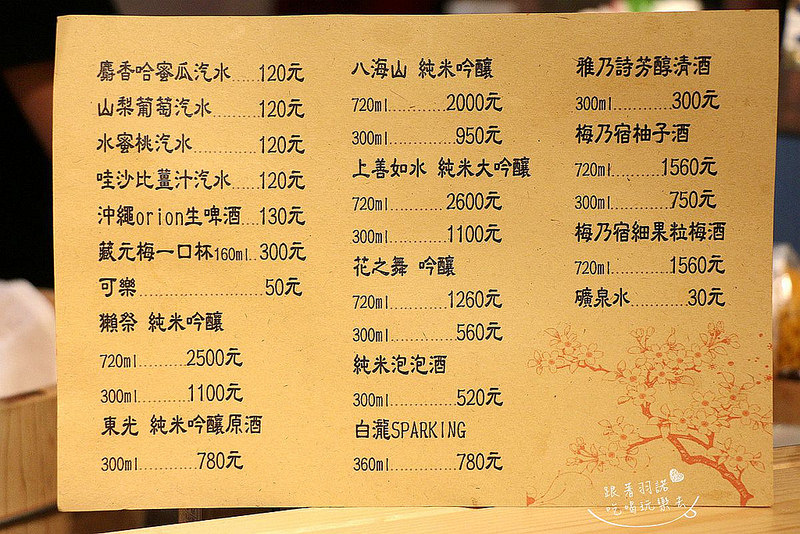 麝香哈蜜瓜汽水.....120元
山梨葡萄汽水........120元
水蜜桃汽水...........120元
哇沙比薑汁汽水.....120元
沖繩orion生啤酒...130元
藏元梅一口杯160ml..300元
可樂........................50元
獺祭 純米吟釀
720ml..........2500元
300ml..........1100元
東光 純米吟釀原酒
300ml............780元
八海山 純米吟釀
720ml...........2000元
300ml.............950元
上善如水 純米大吟釀
720ml...........2600元
300ml...........1100元
花之舞 吟釀
720ml...........1260元
300ml.............560元
純米泡泡酒
300ml.............520元
白瀧SPARKING
360ml.............780元
雅乃詩芳醇清酒
300ml............300元
梅乃宿柚子酒
720ml..........1560元
300ml............750元
梅乃宿細果粒梅酒
720ml...........1560元
礦泉水............30元
跟著羽諾
吃喝玩樂去